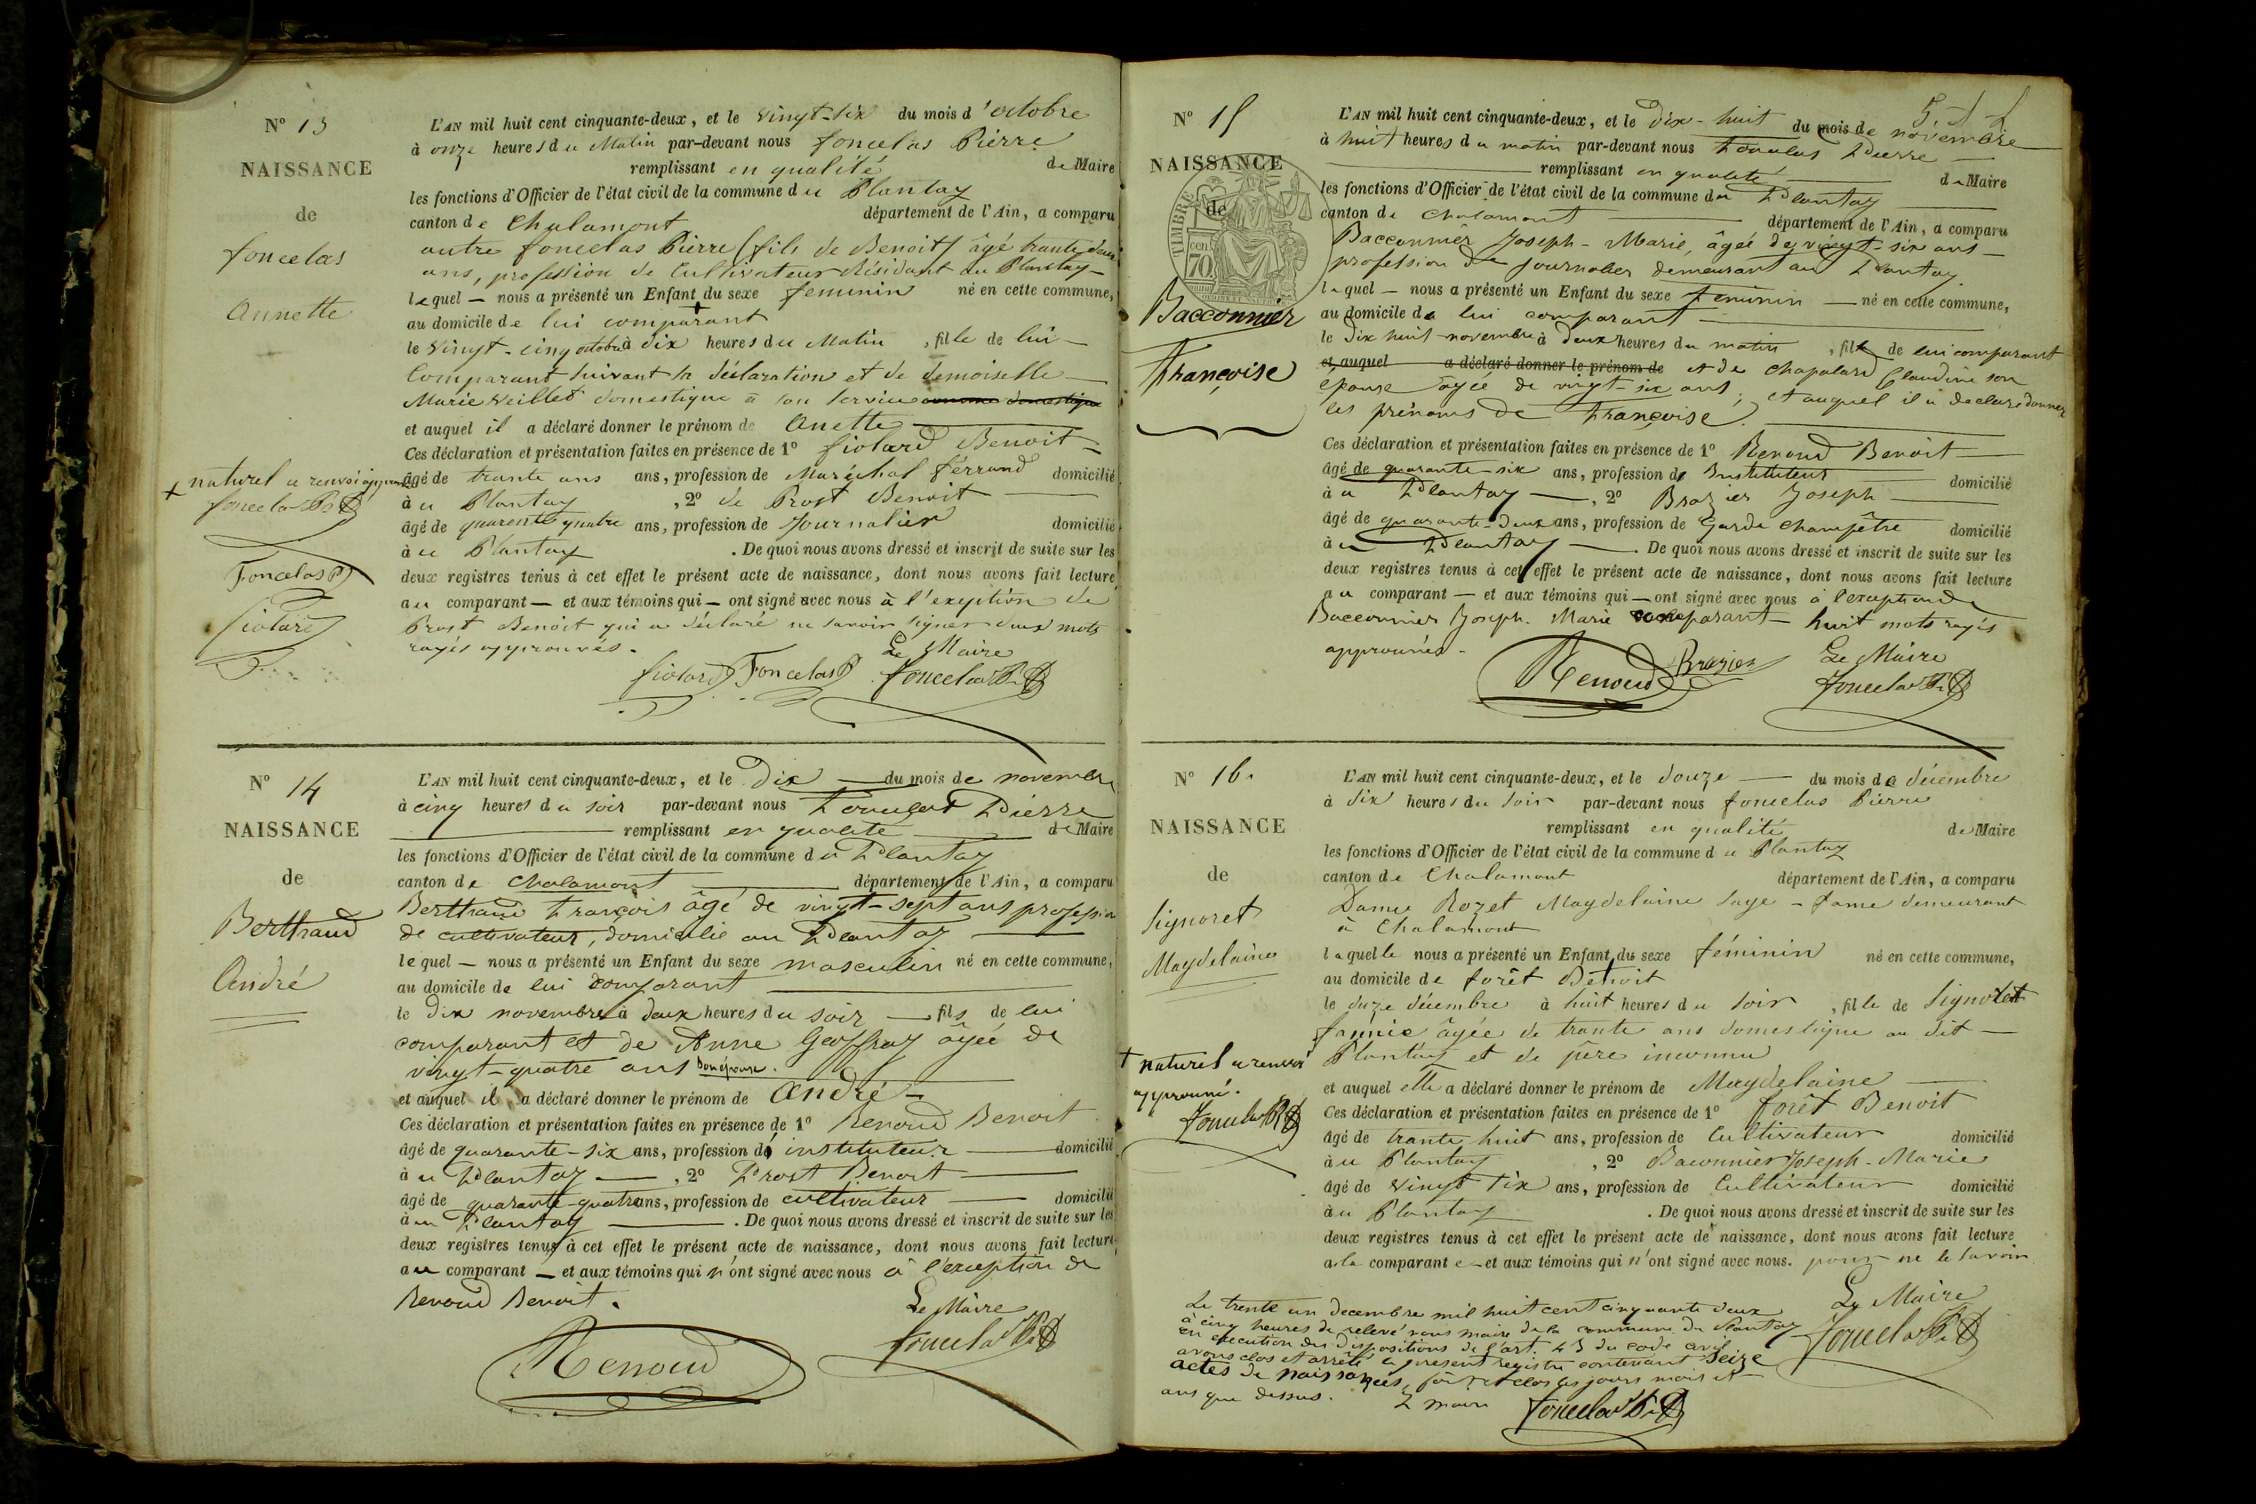 N° 13
NAISSANCE
de
foncelas
Annette
L'AN mil huit cent cinquante-deux, et le vingt-six du mois d'octobre
à onze heures du Matin par-devant nous foncelas Pierre
remplissant en qualité de Maire
les fonctions d'Officier de l'état civil de la commune du Plantay
canton de Chalamont département de l'Ain, a comparu
autre foncelas Pierre (fils de Benoit) âgé trante deux
ans, profession de Cultivateur Résidant au Plantay
lequel — nous a présenté un Enfant + du sexe feminin né en cette commune,
au domicile de lui comparant
le vingt-cinq octobre à dix heures du Matin, fille de lui
Comparant suivant sa déclaration et de demoiselle
Marie Veillet domestique à son service
et auquel il a déclaré donner le prénom de Anette
Ces déclaration et présentation faites en présence de 1° fiolard Benoit
âgé de trante ans ans, profession de Maréchal férrand domicilié
à u Plantay, 2° de Prost Benoit
âgé de quarente quatre ans, profession de Journalier domicilié
à u Plantay. De quoi nous avons dressé et inscrit de suite sur les
deux registres tenus à cet effet le présent acte de naissance, dont nous avons fait lecture
au comparant — et aux témoins qui — ont signé avec nous à l'exeption de
Prost Benoit qui a déclaré ne savoir signer deux mots
rayés approuvés.
Le Maire
fiolard Foncelas P foncelas Pi
+ naturel a renvoi approuvé
foncelas Pi
Foncelas P
fiolard
N° 14
NAISSANCE
de
Berthaud
André
L'AN mil huit cent cinquante-deux, et le Dix du mois de novembre
à cinq heures du soir par-devant nous Foncelas Pierre
remplissant en qualité de Maire
les fonctions d'Officier de l'état civil de la commune du Plantay
canton de Chalamont département de l'Ain, a comparu
Berthaud François âgé de vingt-sept ans profession
de cultivateur, domicilié au Plantay
lequel — nous a présenté un Enfant du sexe masculin né en cette commune,
au domicile de lui comparant
le Dix novembre à deux heures du soir — fils de lui
comparant et de Anne Geoffray âgée de
vingt-quatre ans son épouse.
et auquel il a déclaré donner le prénom de André
Ces déclaration et présentation faites en présence de 1° Renoud Benoit
âgé de quarante-six ans, profession de instituteur domicilié
à u Plantay, 2° Prost Benoit
âgé de quarante-quatre ans, profession de cultivateur domicilié
à u Plantay. De quoi nous avons dressé et inscrit de suite sur les
deux registres tenus à cet effet le présent acte de naissance, dont nous avons fait lecture
au comparant — et aux témoins qui n'ont signé avec nous à l'exception de
Renoud Benoit.
Le Maire
Renoud foncelas Pi
N° 15
NAISSANCE
de
TIMBRE
cen
70
Bacconnier
Françoise
L'AN mil huit cent cinquante-deux, et le dix-huit du mois de novembre
à huit heures du matin par-devant nous Foncelas Pierre
remplissant en qualité de Maire
les fonctions d'Officier de l'état civil de la commune du Plantay
canton de Chalamont département de l'Ain, a comparu
Bacconnier Joseph-Marie, âgée de vingt-six ans
profession de journalier demeurant au Plantay
lequel — nous a présenté un Enfant du sexe feminin né en cette commune,
au domicile de lui comparant
le Dix huit novembre à deux heures du matin, fille de lui comparant
et auquel a déclaré donner le prénom de et de Chapolard Claudine son
épouse âgée de vingt-six ans; et auquel il a déclaré donner
les prénoms de Françoise
Ces déclaration et présentation faites en présence de 1° Renoud Benoit
âgé de quarante-six ans, profession de Instituteur domicilié
à u Plantay, 2° Brazier Joseph
âgé de quarante-deux ans, profession de Garde champêtre domicilié
à u Plantay. De quoi nous avons dressé et inscrit de suite sur les
deux registres tenus à cet effet le présent acte de naissance, dont nous avons fait lecture
au comparant — et aux témoins qui — ont signé avec nous à l'exception de
Bacconnier Joseph-Marie comparant huit mots rayés
approuvés.
Renoud Brazier Le Maire
foncelas Pi
N° 16.
NAISSANCE
de
Signoret
Magdelaine
L'AN mil huit cent cinquante-deux, et le douze du mois de décembre
à dix heures du soir par-devant nous foncelas Pierre
remplissant en qualité de Maire
les fonctions d'Officier de l'état civil de la commune du Plantay
canton de Chalamont département de l'Ain, a comparu
Dame Rozet Magdelaine sage-fame demeurant
à Chalamont
laquelle nous a présenté un Enfant + du sexe féminin né en cette commune,
au domicile de forêt Benoit
le onze décembre à huit heures du soir, fille de Signoret
fannie âgée de trante ans domestique au dit
Plantay et de père inconnu
et auquel elle a déclaré donner le prénom de Magdelaine
Ces déclaration et présentation faites en présence de 1° forêt Benoit
âgé de trante huit ans, profession de Cultivateur domicilié
à u Plantay, 2° Baconnier Joseph-Marie
âgé de vingt six ans, profession de Cultivateur domicilié
à u Plantay. De quoi nous avons dressé et inscrit de suite sur les
deux registres tenus à cet effet le présent acte de naissance, dont nous avons fait lecture
a la comparante et aux témoins qui n'ont signé avec nous. pour ne le savoir
+ naturel a renvoi
approuvé.
foncelas Pi
Le Maire
foncelas Pi
Le trente un decembre mil huit cent cinquante deux
à cinq heures de relevé nous maire de la commune du Plantay
en execution des dispositions de l'art. 43 du code civil
avons clos et arrêté le present registre contenant Seize
actes de naissances, fait et clos les jours mois et
ans que dessus. L maire foncelas Pi